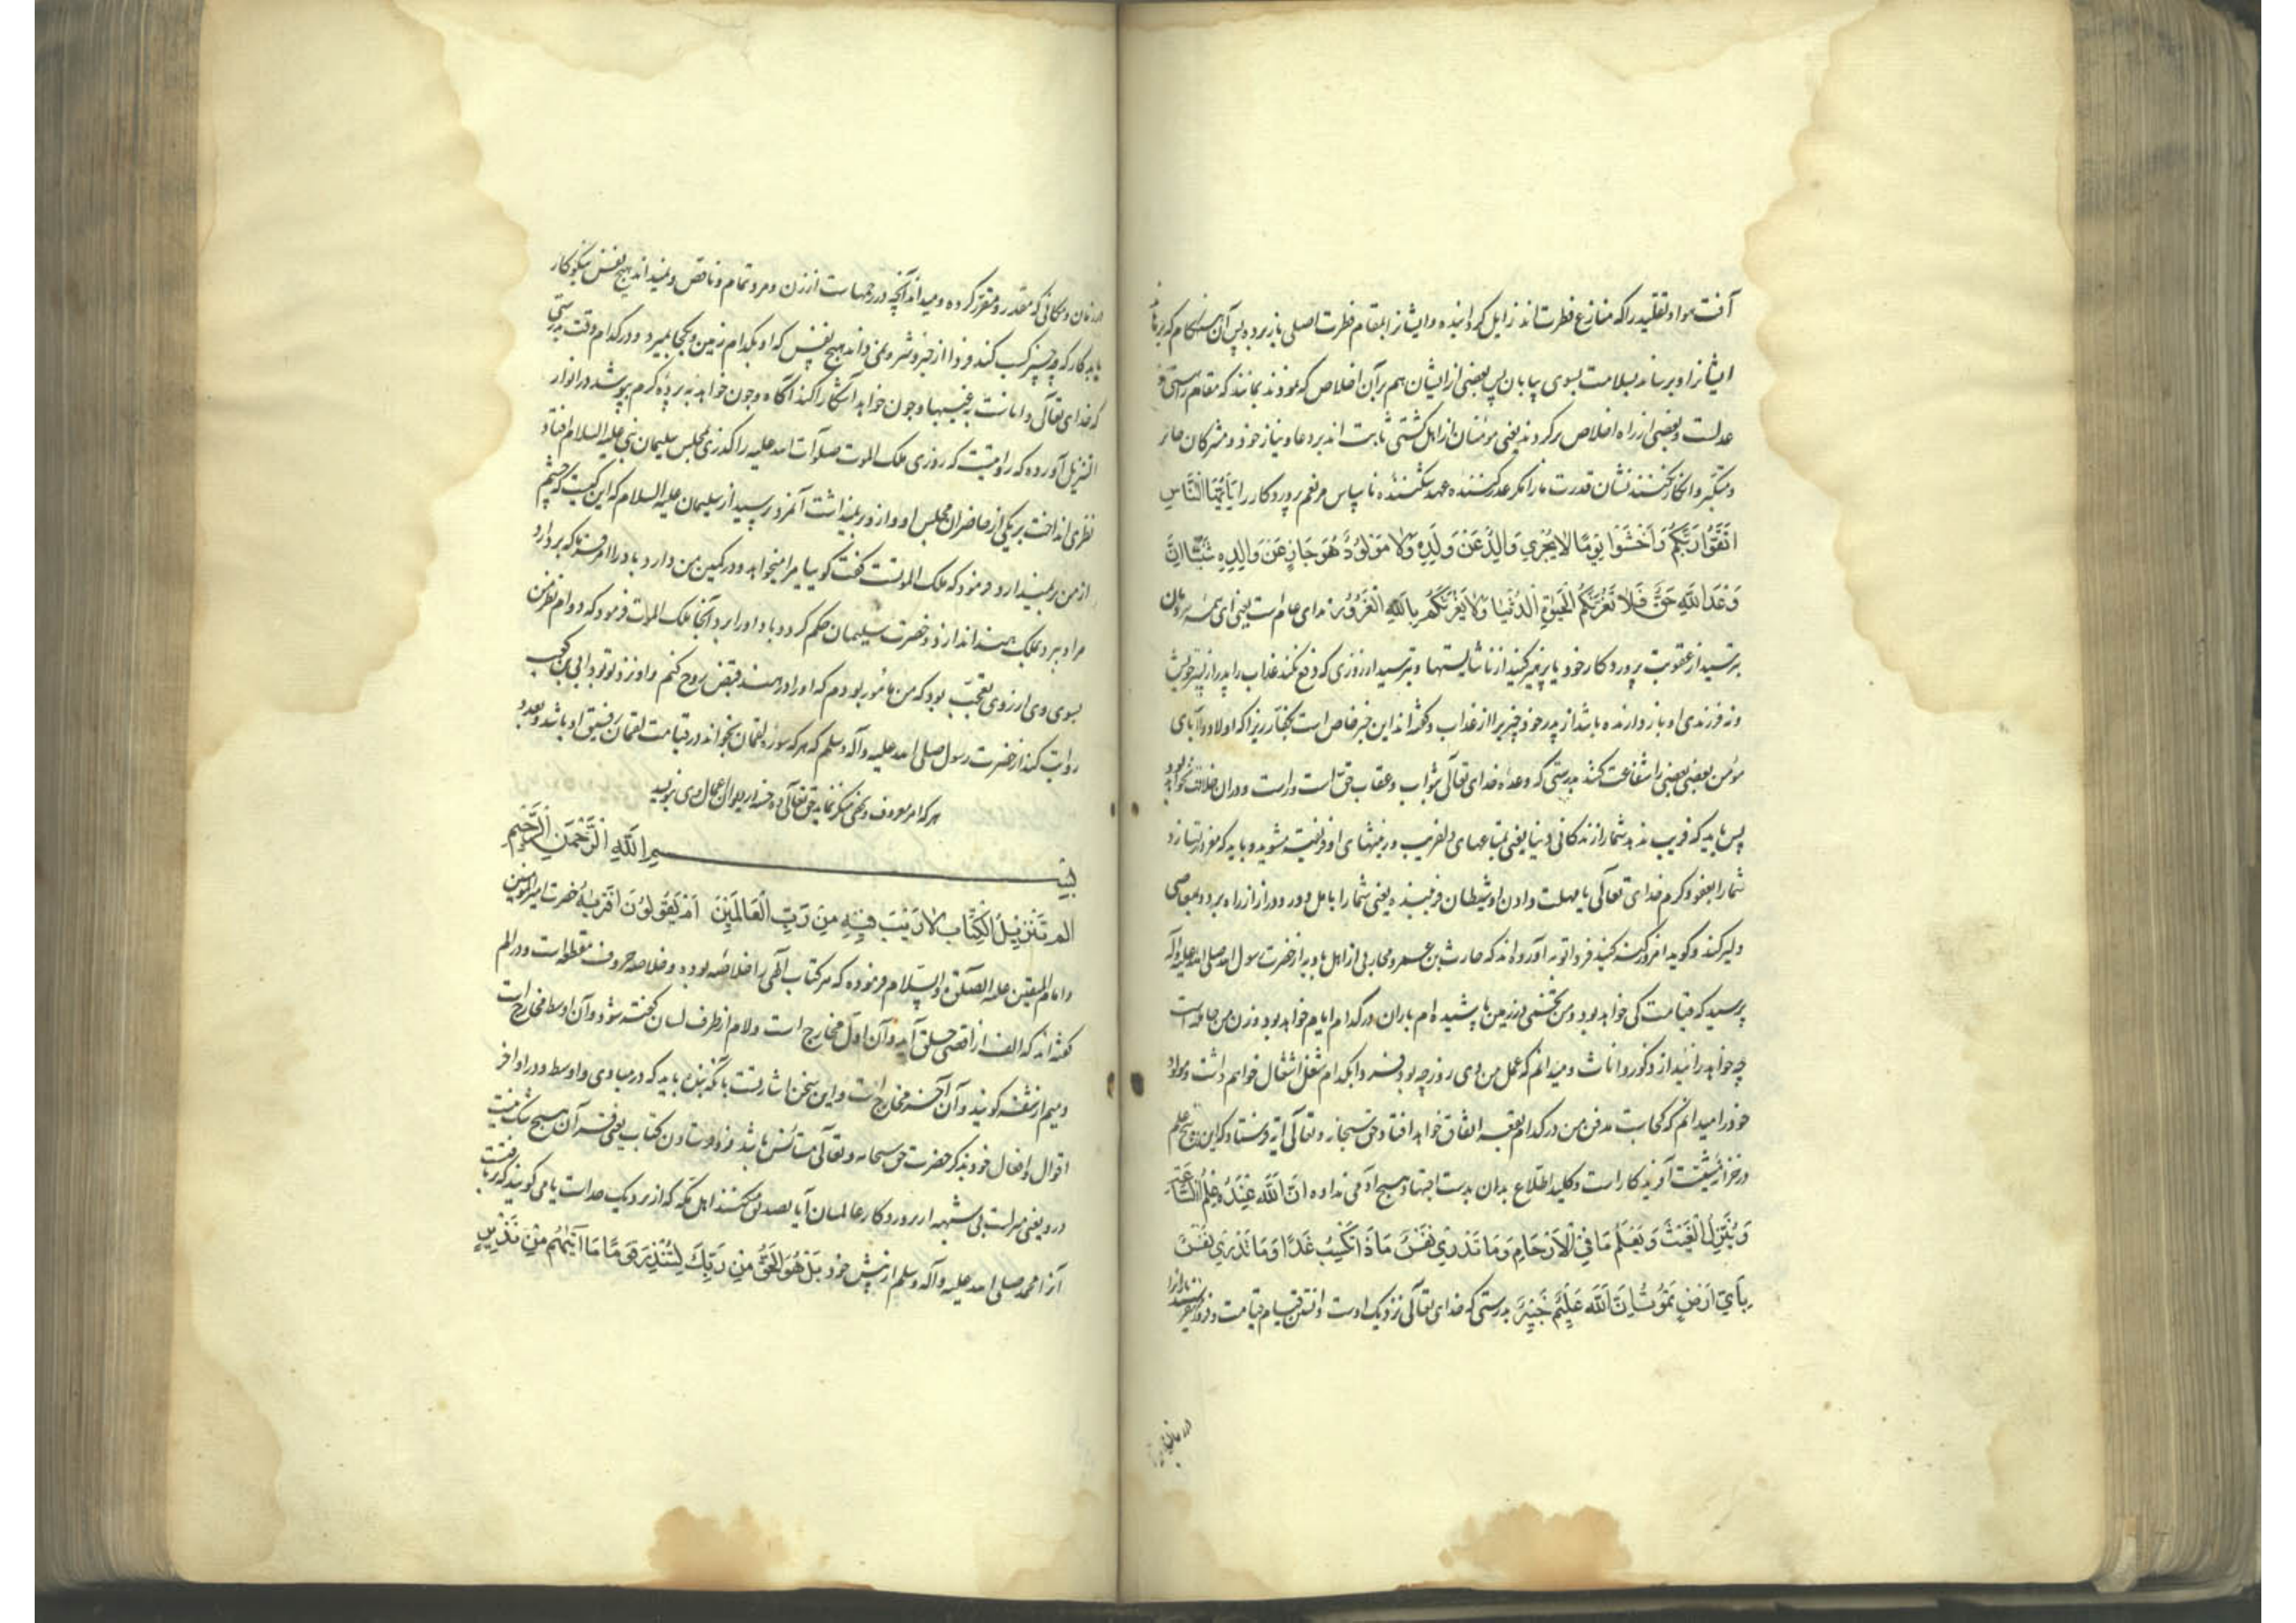 آفت هوا و تقلید را که منازع فطرت اند زایل گردانیده و ایشانرا بمقام فطرت اصلی باز برد پس آن هنگام که برهاند
ایشانرا و برساند بسلامت بسوی بیابان پس بعضی از ایشان هم بر آن اخلاص که نمودند بمانند که مقام راستی و
عدلست و بعضی از راه اخلاص برگردند یعنی مومنان از اهل کشتی ثابت اند بر دعا و نیاز خود و مشرکان جائر
و متکبر و انکار نکنند نشان قدرت ما را مگر هر غدر کننده عهد شکننده ناسپاس مر نعم پروردگار را یَا أَیُّهَا النَّاسُ
اتَّقُوا رَبَّكُمْ وَاخْشَوْا يَوْمًا لَا يَجْزِي وَالِدٌ عَنْ وَلَدِهِ وَلَا مَوْلُودٌ هُوَ جَازٍ عَنْ وَالِدِهِ شَيْئًا إِنَّ
وَعْدَ اللَّهِ حَقٌّ فَلَا تَغُرَّنَّكُمُ الْحَيَوةُ الدُّنْيَا وَلَا يَغُرَّنَّكُمْ بِاللَّهِ الْغَرُورُ ندای عام است یعنی ای همه مردمان
بترسید از عقوبت پروردگار خود یا پرهیز کنید از ناشایستها و بترسید از روزی که دفع نکند عذاب را پدر از پسر خویش
و نه فرزندی او باز دارنده باشد از پدر خود چیزیرا از عذاب و گفته اند این خبر خاص است بکفار زیرا که اولاد و آبای
مؤمن بعضی بعضی را شفاعت کنند بدرستی که وعده خدای تعالی بثواب و عقاب حق است و راست و در ان خلاف نخواهد بود
پس باید که فریب ندهد شما را زندگانی دنیا یعنی بمتاعهای دلفریب و زینتهای او فریفته مشوید و باید که مغرور نسازد
شما را بعفو و کرم خدای تعالی یا مهلت دادن او شیطان فریبنده یعنی شما را بامل دور و دراز از راه برد و بمعاصی
دلیر کند و گوید امروز گنه کنید فردا توبه آورده اند که حارث بن عمرو محاربی از اهل بادیه از حضرت رسول الله صلی الله علیه و آله
پرسید که قیامت کی خواهد بود و من تخمی در زمین پاشیده ام باران در کدام ایام خواهد بود و زن من حامله است
چه خواهد زائید از ذکور و اناث و میدانم که عمل من دی روز چه بود فردا بکدام شغل اشتغال خواهم داشت و مولد
خود را میدانم که کجاست مدفن من در کدام بقعه اتفاق خواهد افتاد حق سبحانه و تعالی آیه فرستاد که این پنج علم
در خزانه مشیت آفریدگار است و کلید اطلاع بدان بدست اجتهاد هیچ آدمی نداده إِنَّ اللَّهَ عِنْدَهُ عِلْمُ السَّاعَةِ
وَيُنَزِّلُ الْغَيْثَ وَيَعْلَمُ مَا فِي الْأَرْحَامِ وَمَا تَدْرِي نَفْسٌ مَاذَا تَكْسِبُ غَدًا وَمَا تَدْرِي نَفْسٌ
بِأَيِّ أَرْضٍ تَمُوتُ إِنَّ اللَّهَ عَلِيمٌ خَبِيرٌ بدرستی که خدای تعالی نزدیک اوست دانستن قیام قیامت و فرو میفرستد باران را
در زمان و مکانی که مقدر و مقرر کرده و میداند آنچه در رحمهاست از زن و مرد و تمام و ناقص و نمیداند هیچ نفس نیکوکار
یا بدکار که چه چیز کسب کند فردا از خیر و شر و نمی داند هیچ نفس که او بکدام زمین و کجا بمیرد و در کدام وقت بدرستی
که خدای تعالی داناست بغیبها و چون خواهد آشکارا کند آگاه و چون خواهد به پرده کرم بپوشد در انوار
التنزیل آورده که روایتست که روزی ملک الموت صلوات الله علیه را گذری بمجلس سلیمان نبی علیه السلام افتاد
نظری انداخت بر یکی از حاضران مجلس او و ازو بر نمیداشت آنمرد پرسید از سلیمان علیه السلام که این کیست که چشم
از من بر نمیدارد فرمود که ملک الموتست گفت گوییا مرا میخواهد و در کمین من دارد باد را امر فرما که بردارد
مرا و ببرد بملک هند اندازد حضرت سلیمان حکم کرد و باد او را برد آنجا ملک الموت فرمود که دوام نظر من
بسوی وی از روی تعجب بود که من مأمور بودم که او را در هند قبض روح کنم و او نزد تو بود ابی بن کعب
روایت کند از حضرت رسول صلی الله علیه و آله و سلم که هر که سوره لقمان بخواند در قیامت لقمان رفیق او باشد و بعدد
هر که امر معروف و نهی منکر نماید حق تعالی ده حسنه در دیوان اعمال وی بنویسد
بِسْمِ اللَّهِ الرَّحْمَنِ الرَّحِيمِ
الم تَنْزِيلُ الْكِتَابِ لَا رَيْبَ فِيهِ مِنْ رَبِّ الْعَالَمِينَ أَمْ يَقُولُونَ افْتَرَاهُ حضرت امیر المومنین
و امام المتقین علیه الصلوة و السلام فرموده که هر کتاب الهی را خلاصه بوده و خلاصه حروف مقطعه است و در الم
گفته اند که الف از اقصی حلق آید و آن اول مخارج است و لام از طرف لسان گفته شود و آن اوسط مخارج است
و میم از شفه گویند و آن آخر مخارج است و این سخن اشارتست بآنکه بنده باید که در مبادی و اوسط و در اواخر
اقوال و افعال خود بذکر حضرت حق سبحانه و تعالی مستأنس باشد فرو فرستادن کتاب یعنی قرآن هیچ شک نیست
درو یعنی مراست بی شبهه از پروردگار عالمیان آیا تصدیق میکنند اهل مکه که از نزدیک خداست یا می گویند که بر بافت
آنرا محمد صلی الله علیه و آله و سلم از پیش خود بَلْ هُوَ الْحَقُّ مِنْ رَبِّكَ لِتُنْذِرَ قَوْمًا مَا أَتَيهُمْ مِنْ نَذِيرٍ